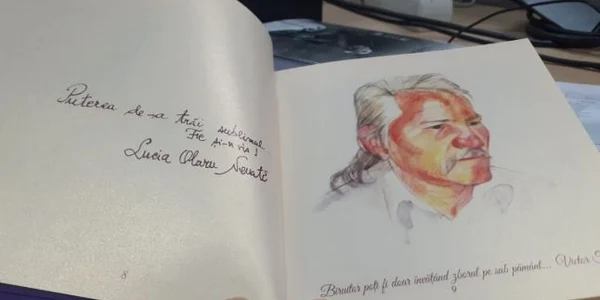 Puterea de-a trăi sublimul
Fie
Lucia Olaru Nenati
8
Biruitor poți fi doar învățând zborul pe sub pământ... Victor
9